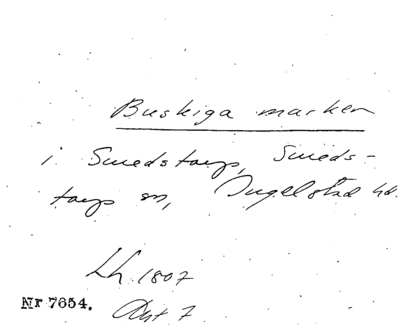 Buskiga marken
i Smedstorp, Smeds-
torp sn, Ingelstad hd.
Lh 1807
Akt 7
Nr 7654.